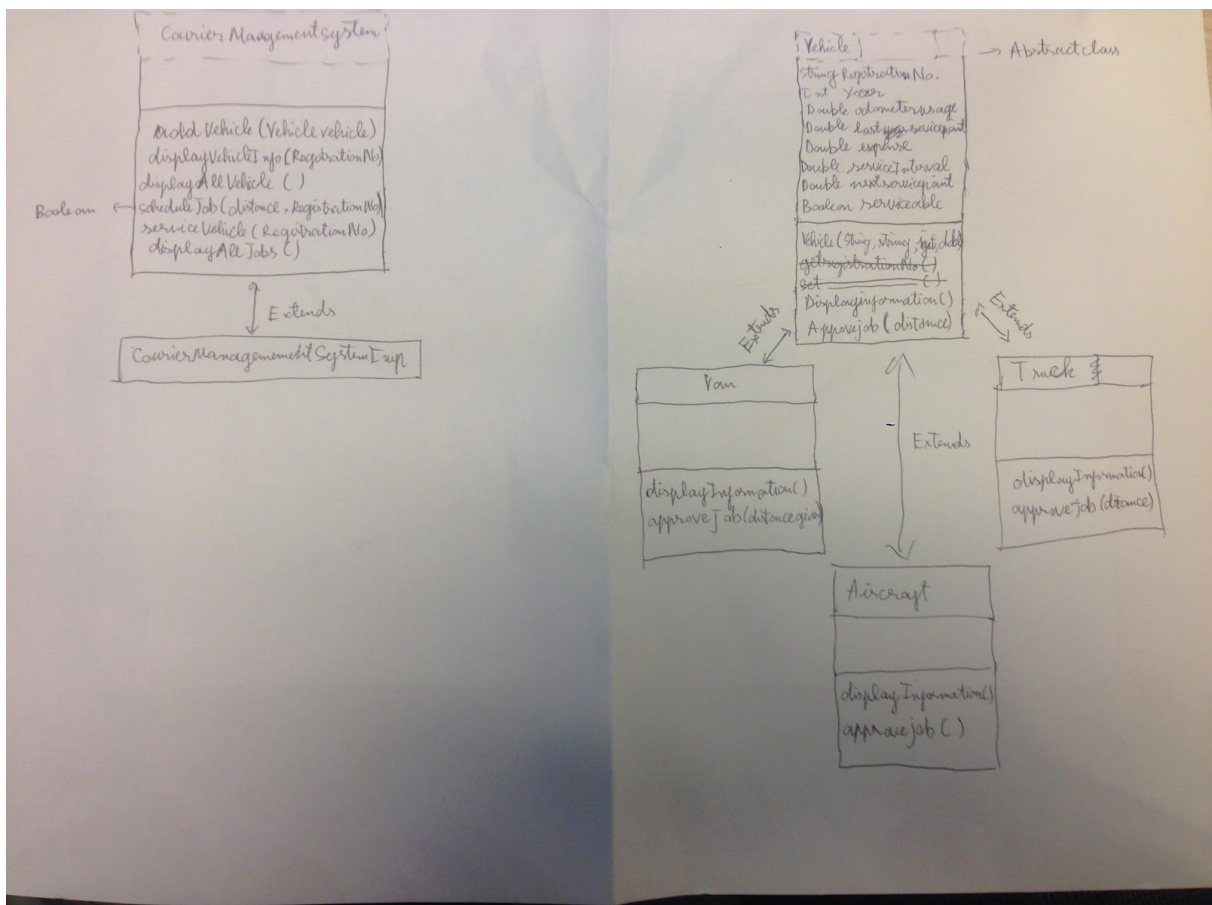 Courier Management System
add Vehicle (Vehicle vehicle)
displayVehicleInfo (RegistrationNo)
displayAllVehicle ( )
Boolean
scheduleJob (distance, RegistrationNo)
serviceVehicle (RegistrationNo)
displayAllJobs ( )
Extends
CourierManagemementSystemImp
Vehicle
Abstract class
String RegistrationNo.
Int Year
Double odometerusage
Double last servicepoint
Double expense
Double serviceInterval
Double nextservicepoint
Boolean serviceable
Vehicle (String, string,
getregistrationNo ( )
set ( )
Displayinformation ( )
Approvejob (distance)
Extends
Extends
Van
displayInformation()
approveJob (distancegiven)
Extends
Truck
displayInformation()
approvejob (distance)
Aircraft
displayInformation()
approvejob ( )